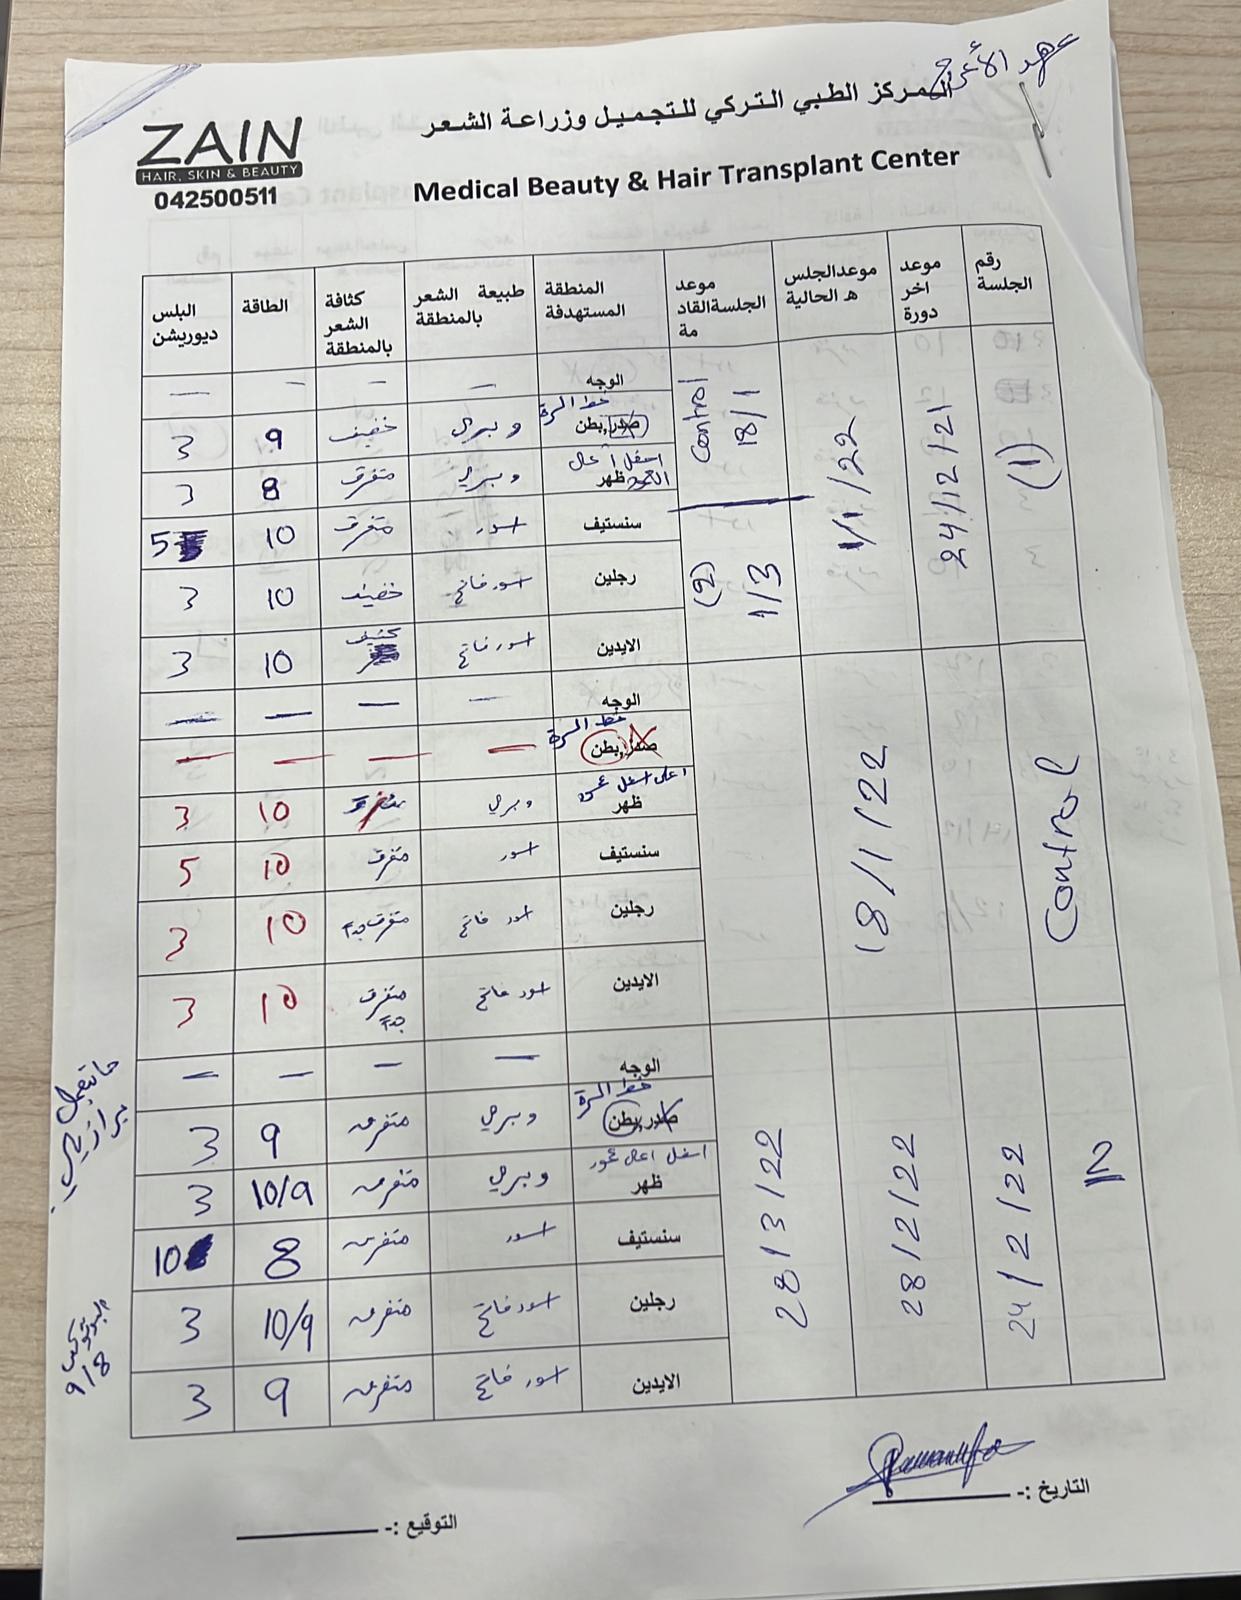 عهد الأعرج
المركز الطبي التركي للتجميل وزراعة الشعر
ZAIN
HAIR, SKIN & BEAUTY
042500511
Medical Beauty & Hair Transplant Center
رقم الجلسة | موعد اخر دورة | موعدالجلسه الحالية | موعد الجلسةالقادمة | المنطقة المستهدفة | طبيعة الشعر بالمنطقة | كثافة الشعر بالمنطقة | الطاقة | البلس ديوريشن
(1) | 24/12/21 | 1/1/22 | Control 18/1
(2) 1/3
الوجه | — | — | — | —
خط السرة
صدر,بطن | وبري | خفيف | 9 | 3
اسفل أعلى
ظهر | وبري | متفرق | 8 | 3
سنستيف | اسود | متفرق | 10 | 5
رجلين | اسود فاتح | خفيف | 10 | 3
الايدين | اسود فاتح | خفيف | 10 | 3
Control | 18/1/22
الوجه | — | — | — | —
خط السرة
صدر,بطن | — | — | — | —
اعلى اسفل
ظهر | وبري | 10 | 3
سنستيف | اسود | متفرق | 10 | 5
رجلين | اسود فاتح | متفرق جداً | 10 | 3
الايدين | اسود فاتح | متفرق جداً | 10 | 3
2 | 24/2/22 | 28/2/22 | 28/3/22
الوجه | — | — | — | —
خط السرة
صدر,بطن | وبري | متفرق | 9 | 3
اسفل اعلى
ظهر | وبري | متفرق | 10/9 | 3
سنستيف | اسود | متفرق | 8 | 10
رجلين | اسود فاتح | متفرق | 10/9 | 3
الايدين | اسود فاتح | متفرق | 9 | 3
9/8
التاريخ :-
التوقيع :-